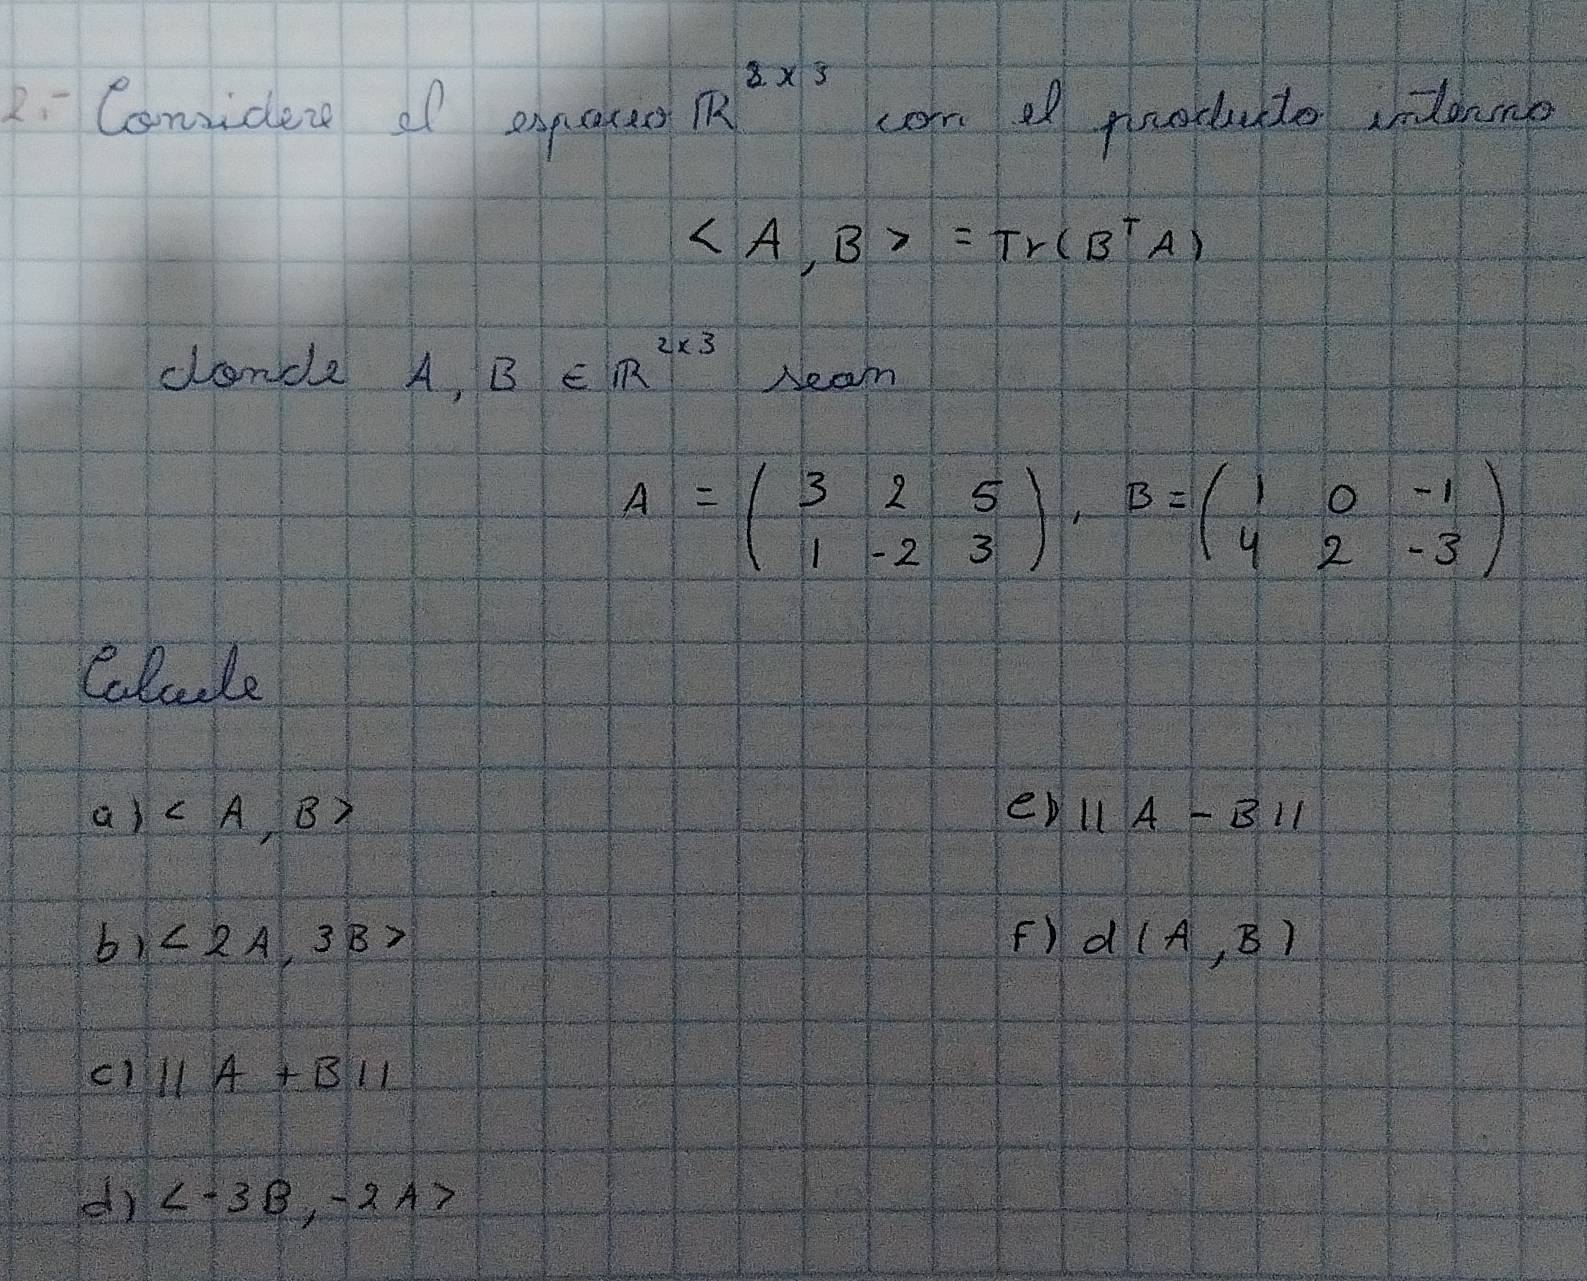 2.- Considere el espacio ℝ^2×3 con el producto interno
< A , B > = Tr(B^T A)
donde A, B ∈ ℝ^2×3 sean
A = ( 3 2 5 ) , B = ( 1 0 -1 )
( 1 -2 3 ) ( 4 2 -3 )
Calcule
a) < A , B >
e) || A - B ||
b) < 2A , 3B >
F) d ( A , B )
c) || A + B ||
d) < -3B , -2A >